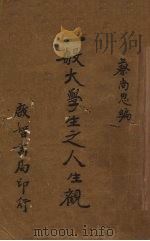 蔡尚思編
般大學生之人生觀
啟智書局印行